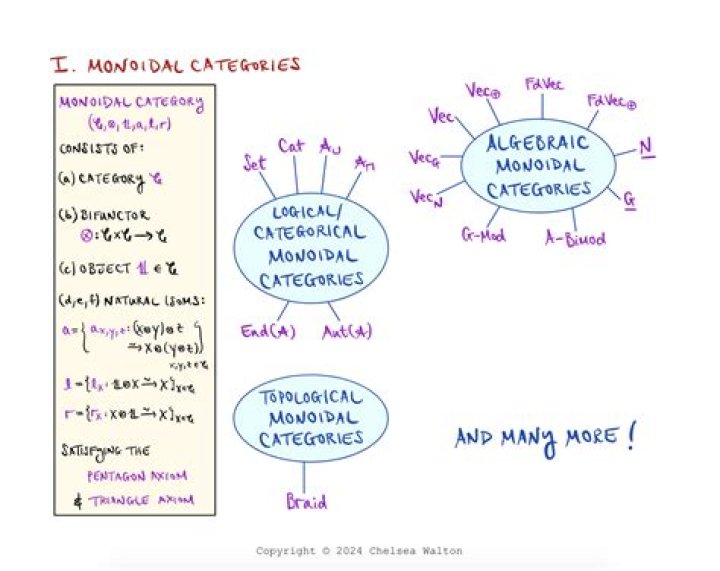 I. MONOIDAL CATEGORIES
MONOIDAL CATEGORY
(𝒞, ⊗, 𝟙, a, l, r)
CONSISTS OF:
(a) CATEGORY 𝒞
(b) BIFUNCTOR
⊗: 𝒞 × 𝒞 → 𝒞
(c) OBJECT 𝟙 ∈ 𝒞
(d,e,f) NATURAL ISOMS:
a = { a_{x,y,z}: (X⊗Y)⊗Z
⥲ X⊗(Y⊗Z) }_{X,Y,Z∈𝒞}
l = {l_X: 𝟙⊗X ⥲ X}_{X∈𝒞}
r = {r_X: X⊗𝟙 ⥲ X}_{X∈𝒞}
SATISFYING THE
PENTAGON AXIOM
& TRIANGLE AXIOM
Set
Cat
A_⊔
A_⊓
LOGICAL/
CATEGORICAL
MONOIDAL
CATEGORIES
End(A)
Aut(A)
TOPOLOGICAL
MONOIDAL
CATEGORIES
Braid
Vec_N
Vec_G
Vec
Vec_⊕
FdVec
FdVec_⊕
N
G
ALGEBRAIC
MONOIDAL
CATEGORIES
G-Mod
A-Bimod
AND MANY MORE!
Copyright © 2024 Chelsea Walton